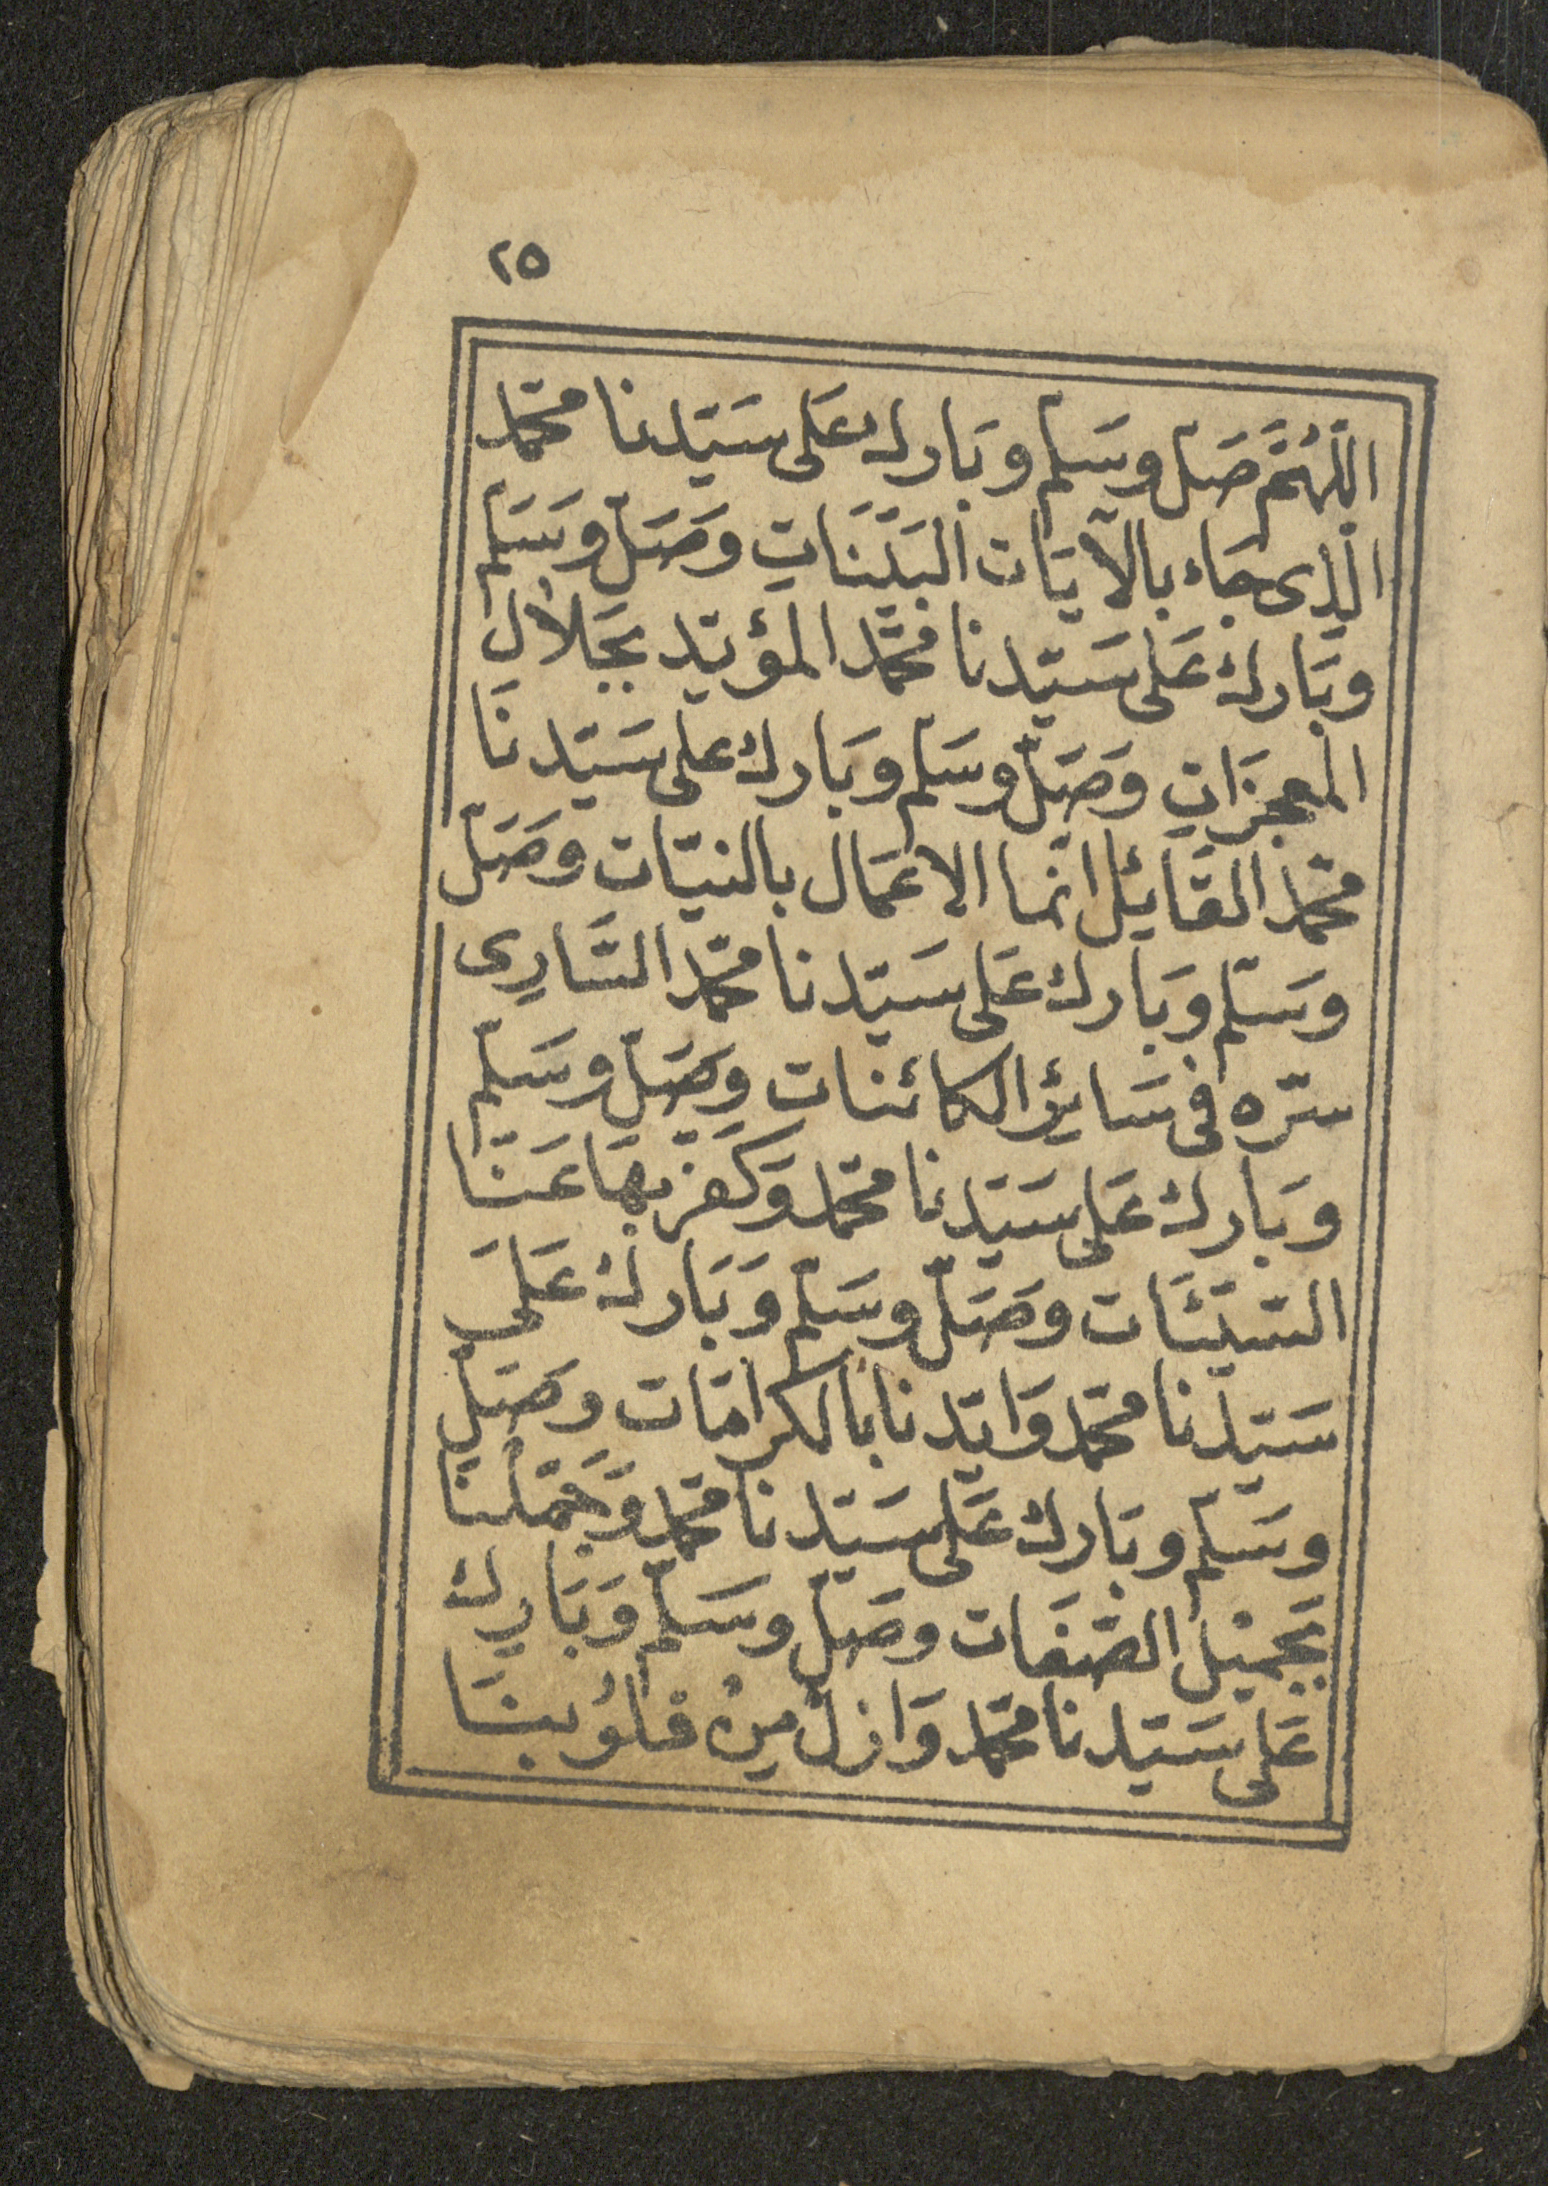 ٢٥
اللّهُمَّ صَلّ وسَلّم وبَارك عَلى سَيّدنا محمّد
الّذى جَاء بالآيَات البَيّنَاتِ وَصَلّ وسَلّم
وبَارك عَلى سَيّدنا محمّد المؤيّد بجَلالِ
المعجزَاتِ وَصَلّ وسَلّم وبَارك على سَيّدنَا
محمّد القَائِل انّما الاعمَال بالنيّات وصَلّ
وسَلّم وبَارك عَلى سَيّدنا محمّد السَّارِى
سرّه فى سَائِر الكائنات وصَلّ وسَلّم
وبَارك عَلى سَيّدنا محمّد وَكَفّر بهَا عَنَّا
السّيّئَات وصَلّ وسَلّم وَبَارك عَلَى
سَيّدنا محمّد وَايّدنا بالكرامَات وصَلّ
وسَلّم وبَارك عَلى سَيّدنا محمّد وَجَمّلْنا
بَجميْل الصّفَات وصَلّ وسَلّم وَبَارِك
عَلى سَيّدنا محمّد وَازل مِنْ قلُوبنَا